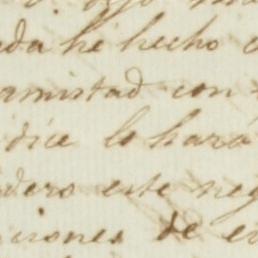 he hecho
amistad con
dice lo hará
este neg
ciones de e